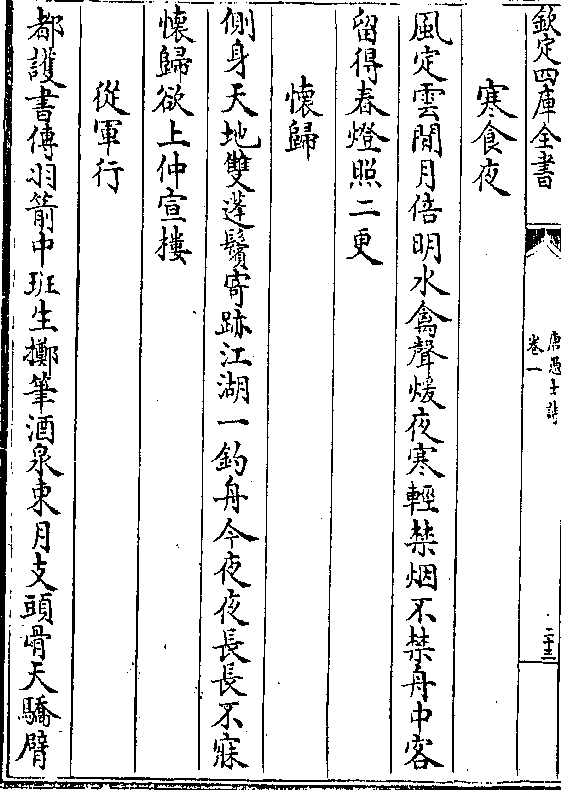 欽定四庫全書
唐愚士詩
卷一
二十三
寒食夜
風定雲閒月倍明水禽聲煖夜寒輕禁烟不禁舟中客
留得春燈照二更
懷歸
側身天地雙蓬鬢寄跡江湖一釣舟今夜夜長長不寐
懷歸欲上仲宣樓
從軍行
都護書傳羽箭中班生擲筆酒泉東月支頭骨天驕臂